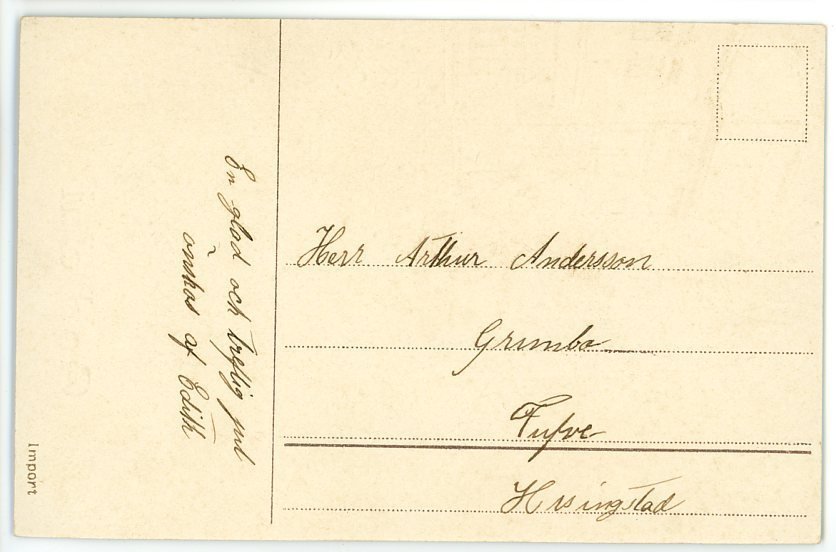 En glad och treflig jul
önskas af Edith
Herr Arthur Andersson
Grimbo
Tufve
Hisingstad
Import